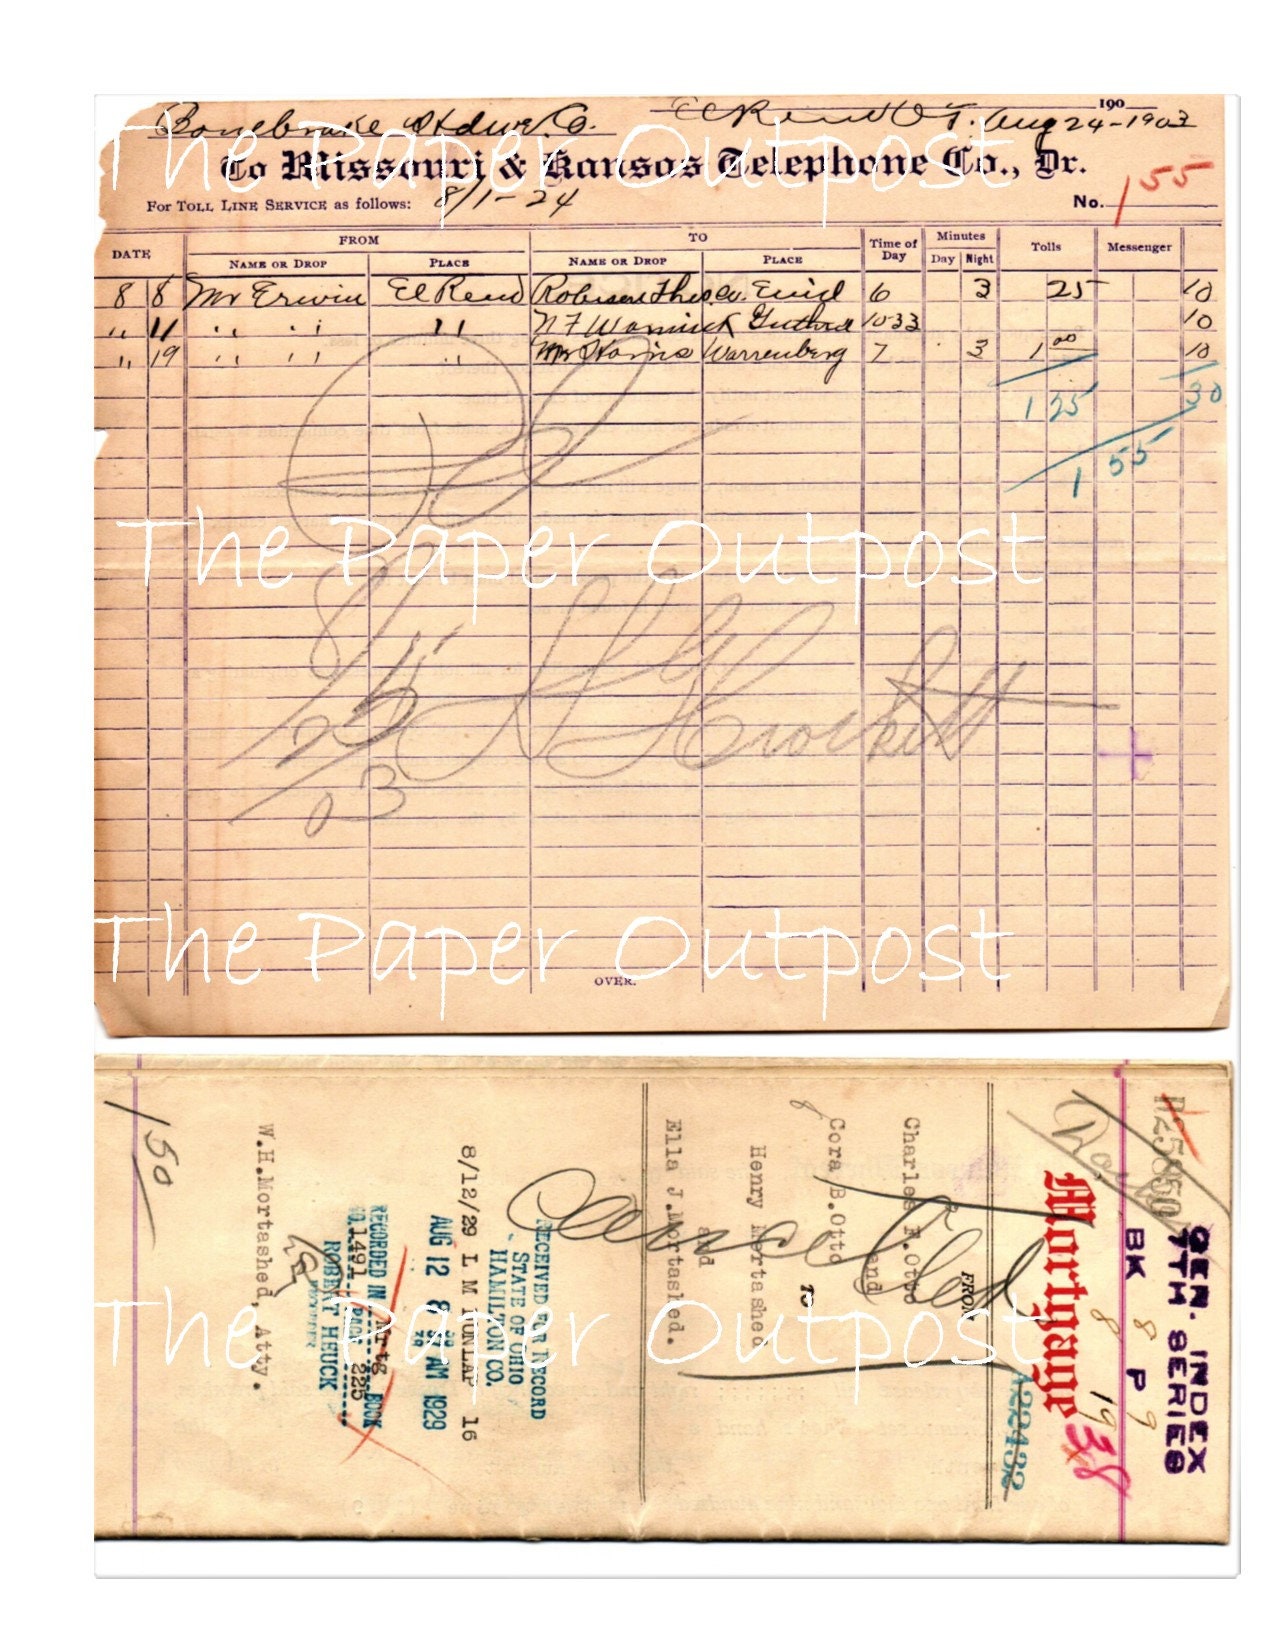 Bonebrake Hdwe. Co. El Reno O T. Aug 24-1903
190
To Missouri & Kansas Telephone Co., Dr.
For TOLL LINE SERVICE as follows: 8/1-24
No. 1 55
DATE FROM TO Time of Day Minutes Tolls Messenger
NAME OR DROP PLACE NAME OR DROP PLACE Day Night
8 8 Mr Erwin El Reno Enid 6 3 25 10
" 11 " " " Guthrie 1033 10
" 19 " " " Mr Harris Warrenberg 7 3 1 00 10
1 25 30
1 55
The Paper Outpost
The Paper Outpost
8/25/03
Crockett
The Paper Outpost
OVER.
GEN. INDEX
7TH SERIES
BK 8 P 9
R25850
8 8 1938
Mortgage
A22422
FROM
Charles F.Otto
and
Cora B.Otto
TO
Henry Mortashed
and
Ella J.Mortashed.
Cancelled
RECEIVED FOR RECORD
STATE OF OHIO
HAMILTON CO.
8/12/29 L M DUNLAP 16
AUG 12 8 AM 1929
RECORDED IN Mrtg BOOK
NO. 1491 PAGE 225
ROBERT HEUCK
RECORDER
W.H.Mortashed, Atty.
150
The Paper Outpost